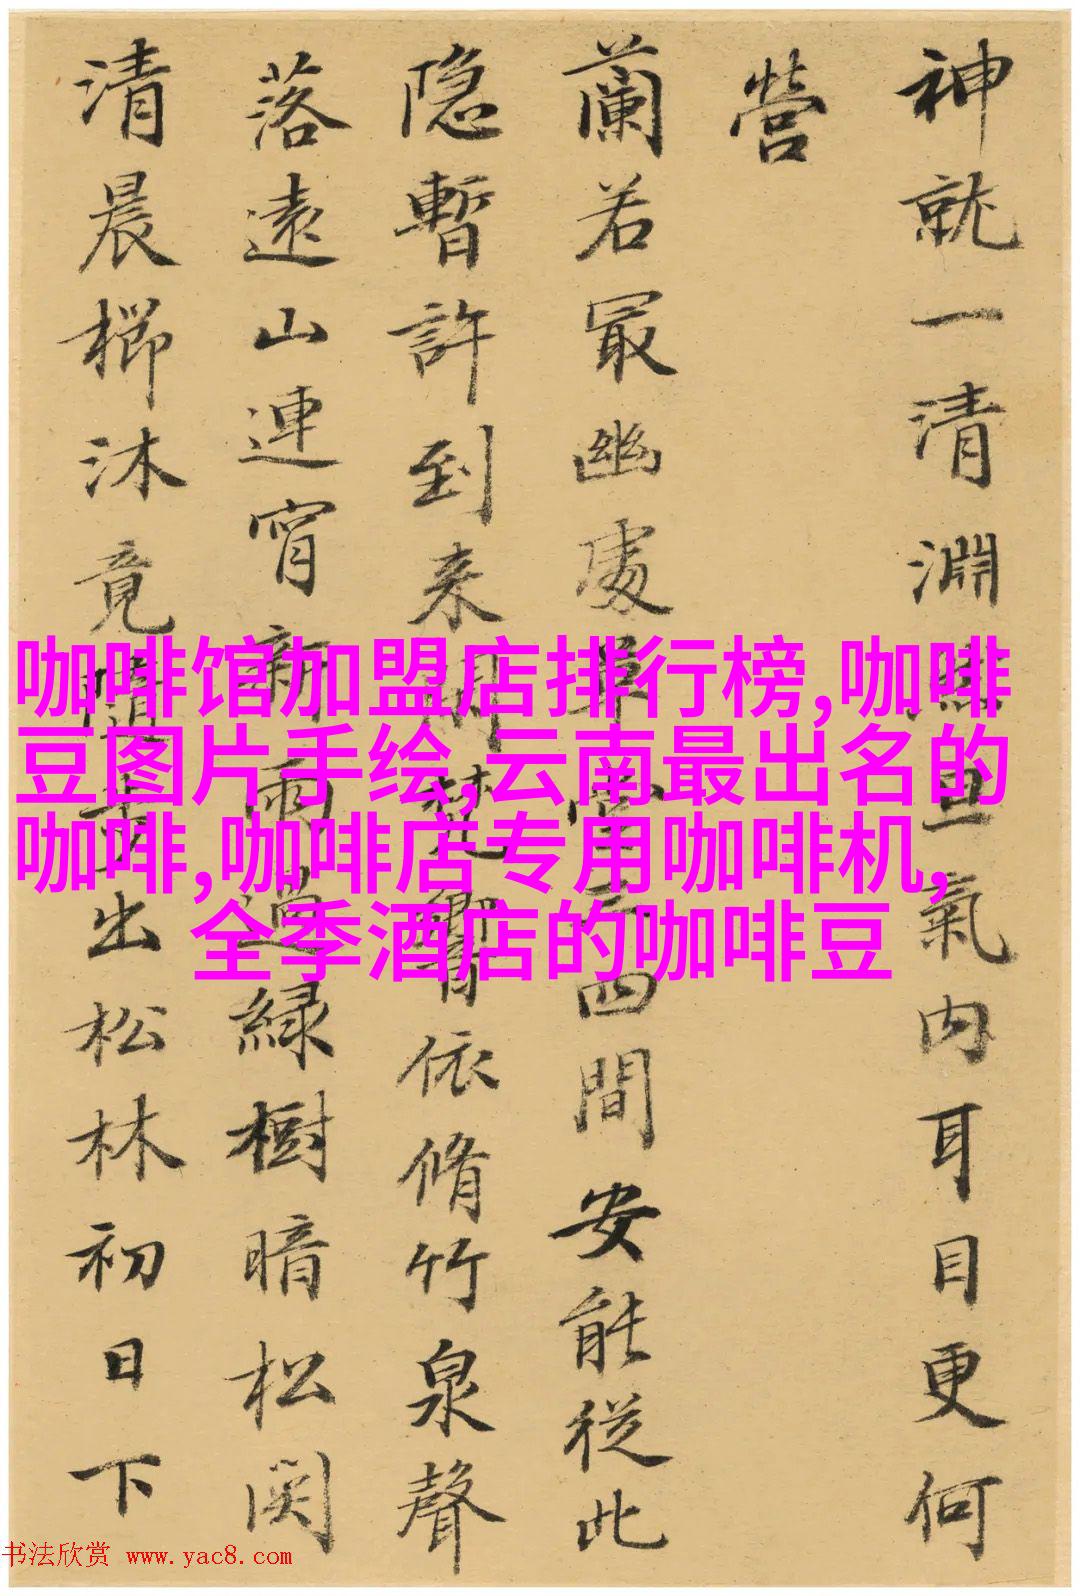 神就一清淵照旦氣内耳目更何
營
蘭若冣幽處草堂三四間安能從此
隐暫許到来閒梵響依脩竹泉聲
落遠山連宵新雨過緑樹暗松関
清晨櫛沐竟出松林初日下
咖啡馆加盟店排行榜,咖啡
豆图片手绘,云南最出名的
咖啡,咖啡店专用咖啡机,
全季酒店的咖啡豆
书法欣赏 www.yac8.com